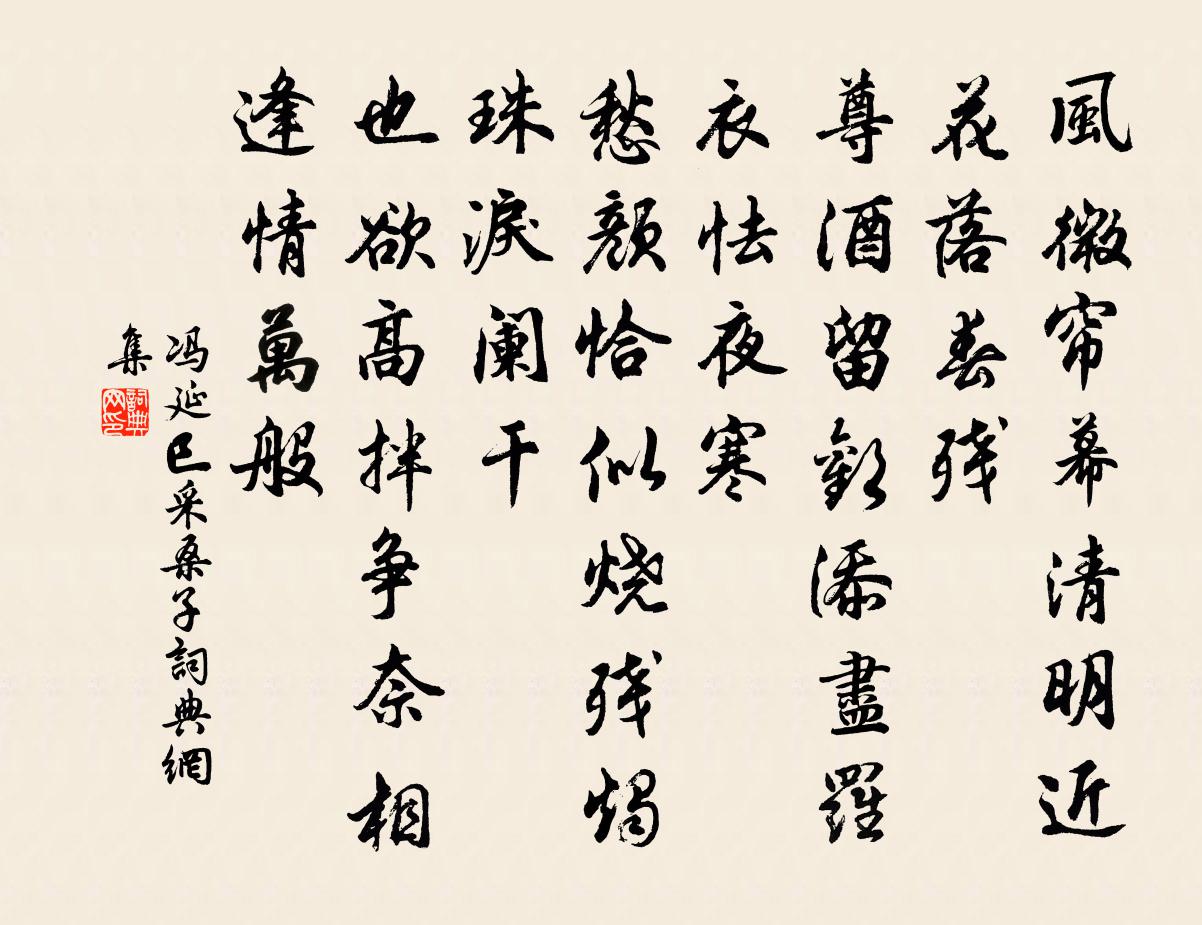 風微帘幕清明近
花落春残
尊酒留歡添盡羅
衣怯夜寒
愁顔恰似烧残燭
珠淚阑干
也欲高拌争奈相
逢情萬般
冯延巳采桑子詞典網
集
詞典网印